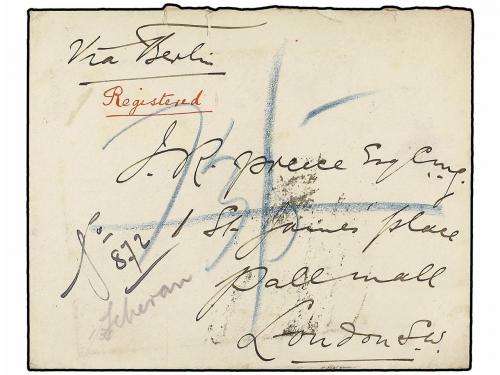 Via Berlin
Registered
J. R. Preece Esq C.M.G.
1 St. James' Place
Pall Mall
London S.W.
No. 872
Teheran